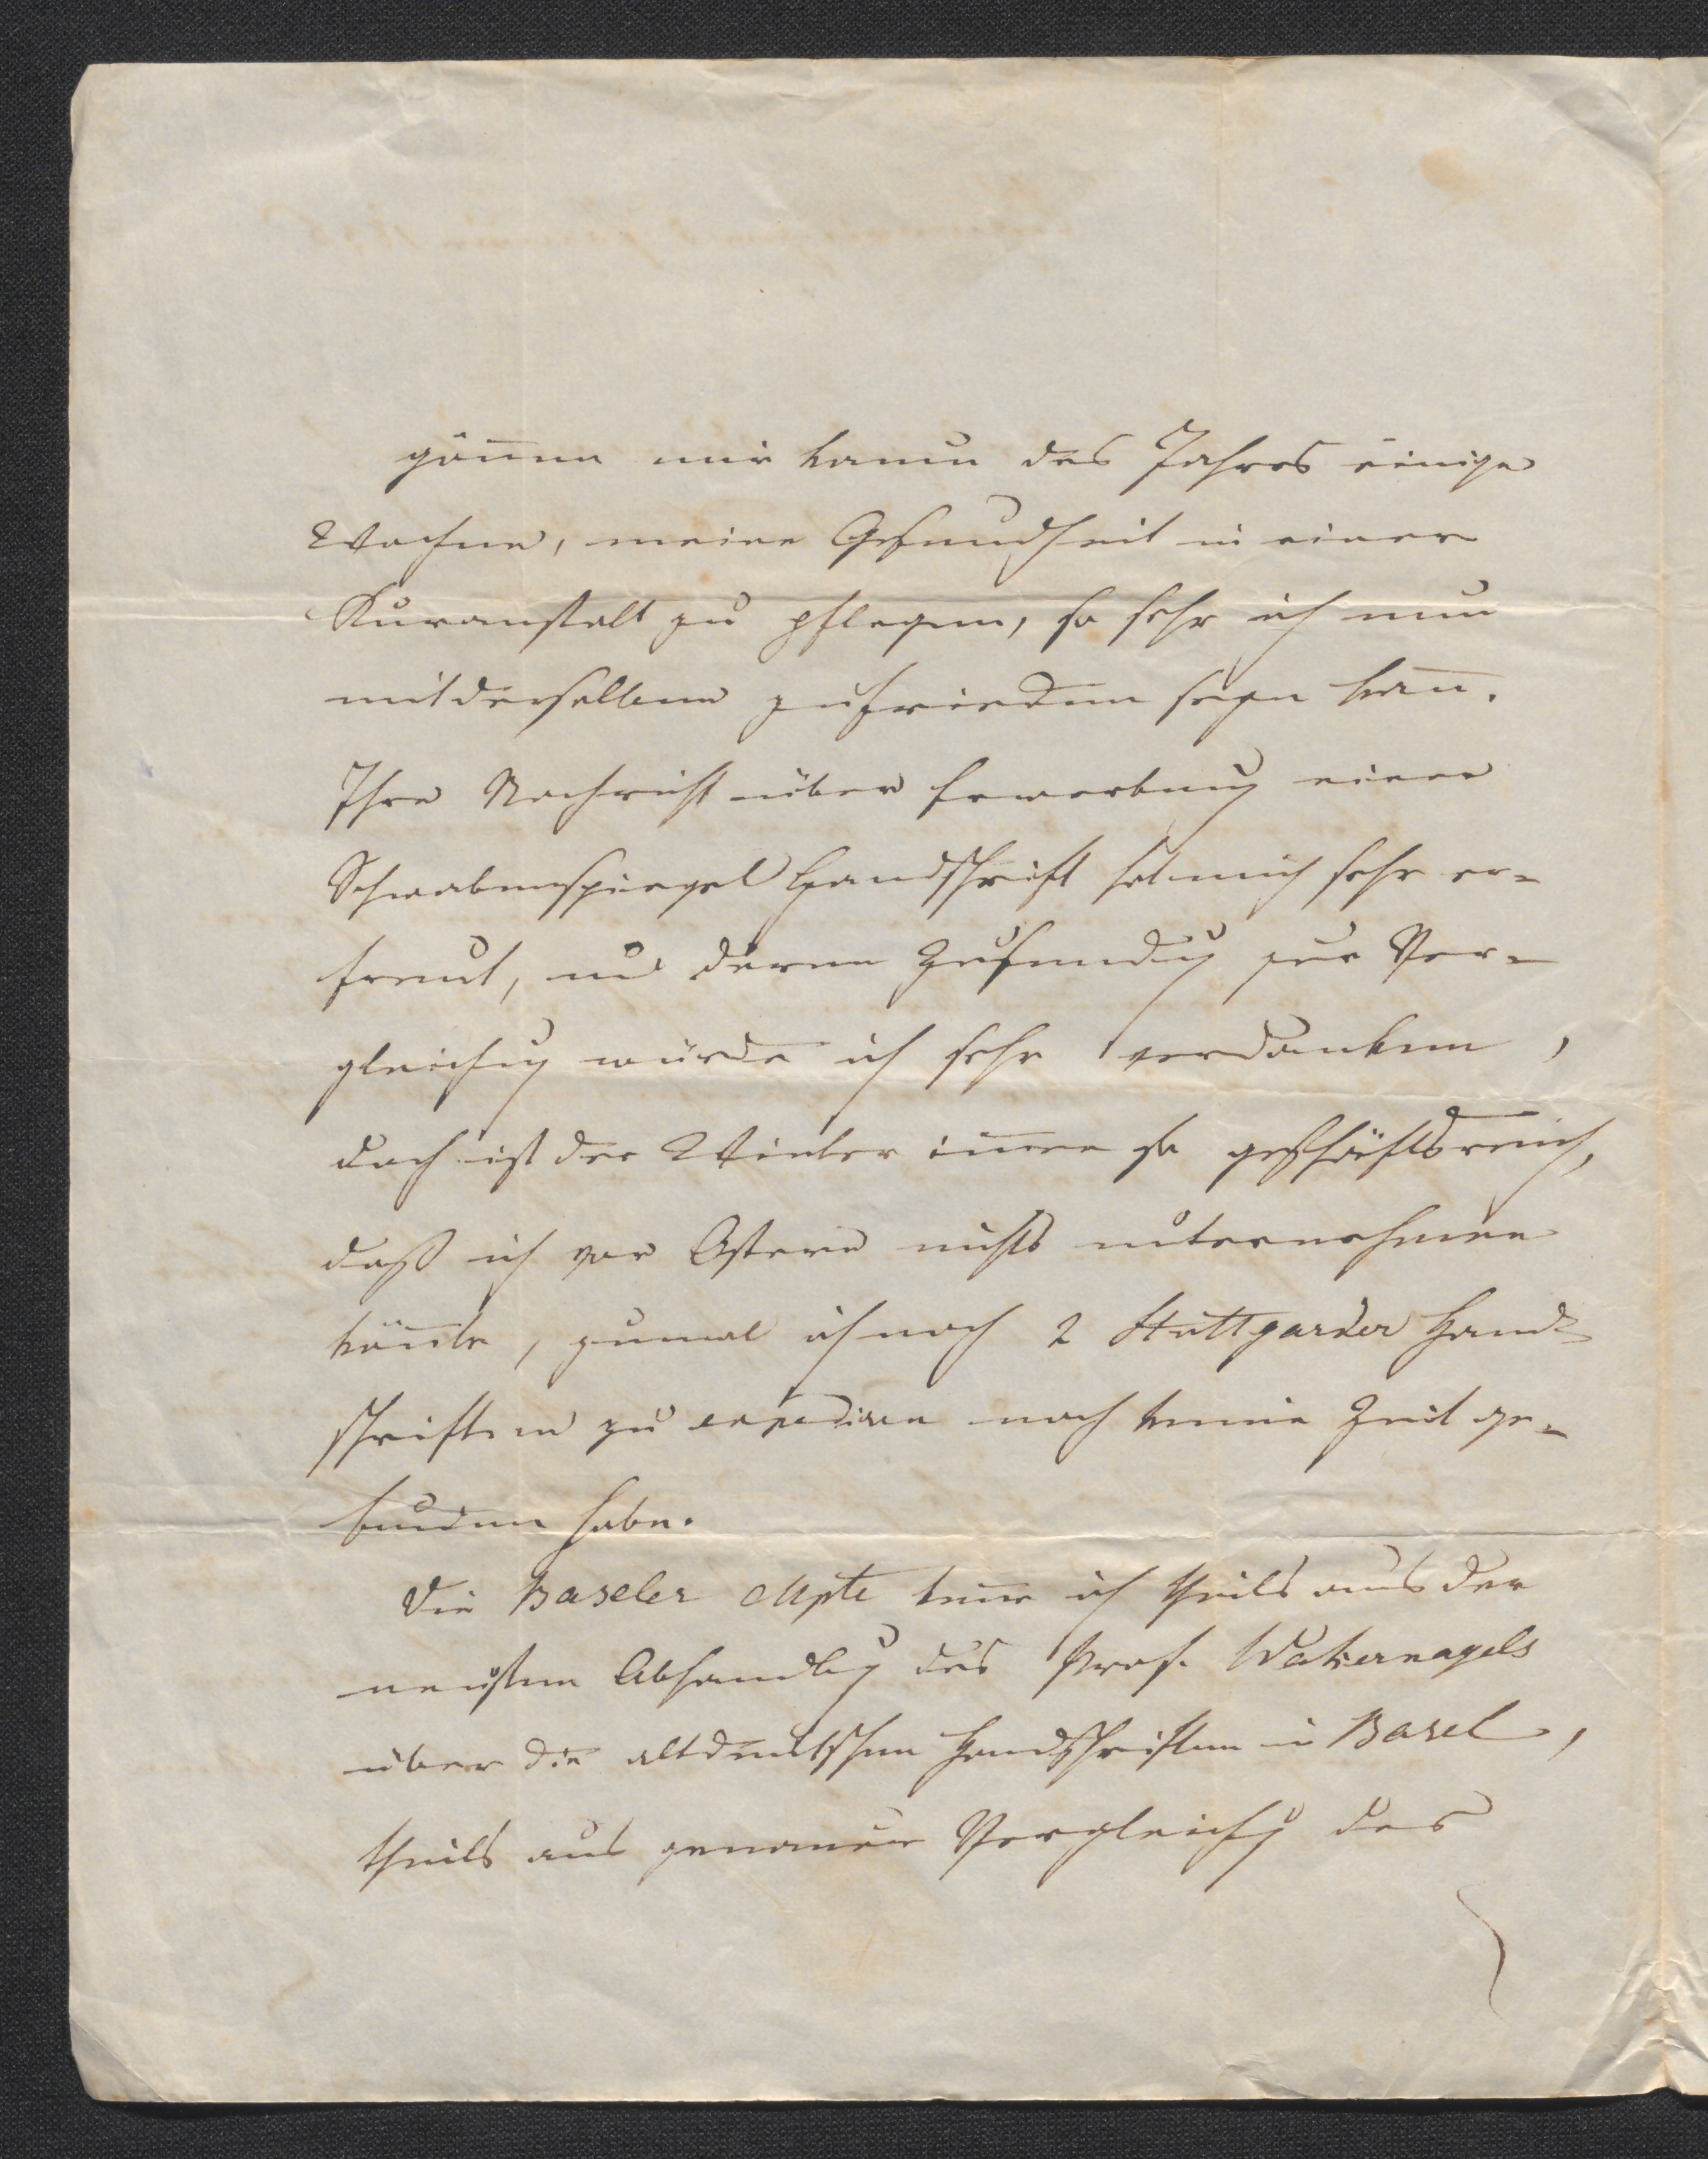 gönnen mir kaum des Jahres einige
Wochen, meine Gesundheit in einer
Kuranstalt zu pflegen, so sehr ich nun
mit derselben zufrieden seyn kan̄.
Ihre Nachricht über Erwerbung einer
Schwabenspiegel Handschrift hat mich sehr er-
freut, und deren Zusendung zur Ver-
gleichung würde ich sehr verdanken,
doch ist der Winter im̄er so geschäftsreich,
daß ich vor Ostern nichts unternehmen
kön̄te, zumal ich noch 2 Stuttgarder Hand-
schriften zu expediren noch keine Zeit ge-
funden habe.
Die Baseler Mpte ken̄e ich theils aus der
neusten Abhandlg des Prof. Wakernagels
über die altdeutschen Handschriften in Basel,
theils aus genauer Vergleichg des